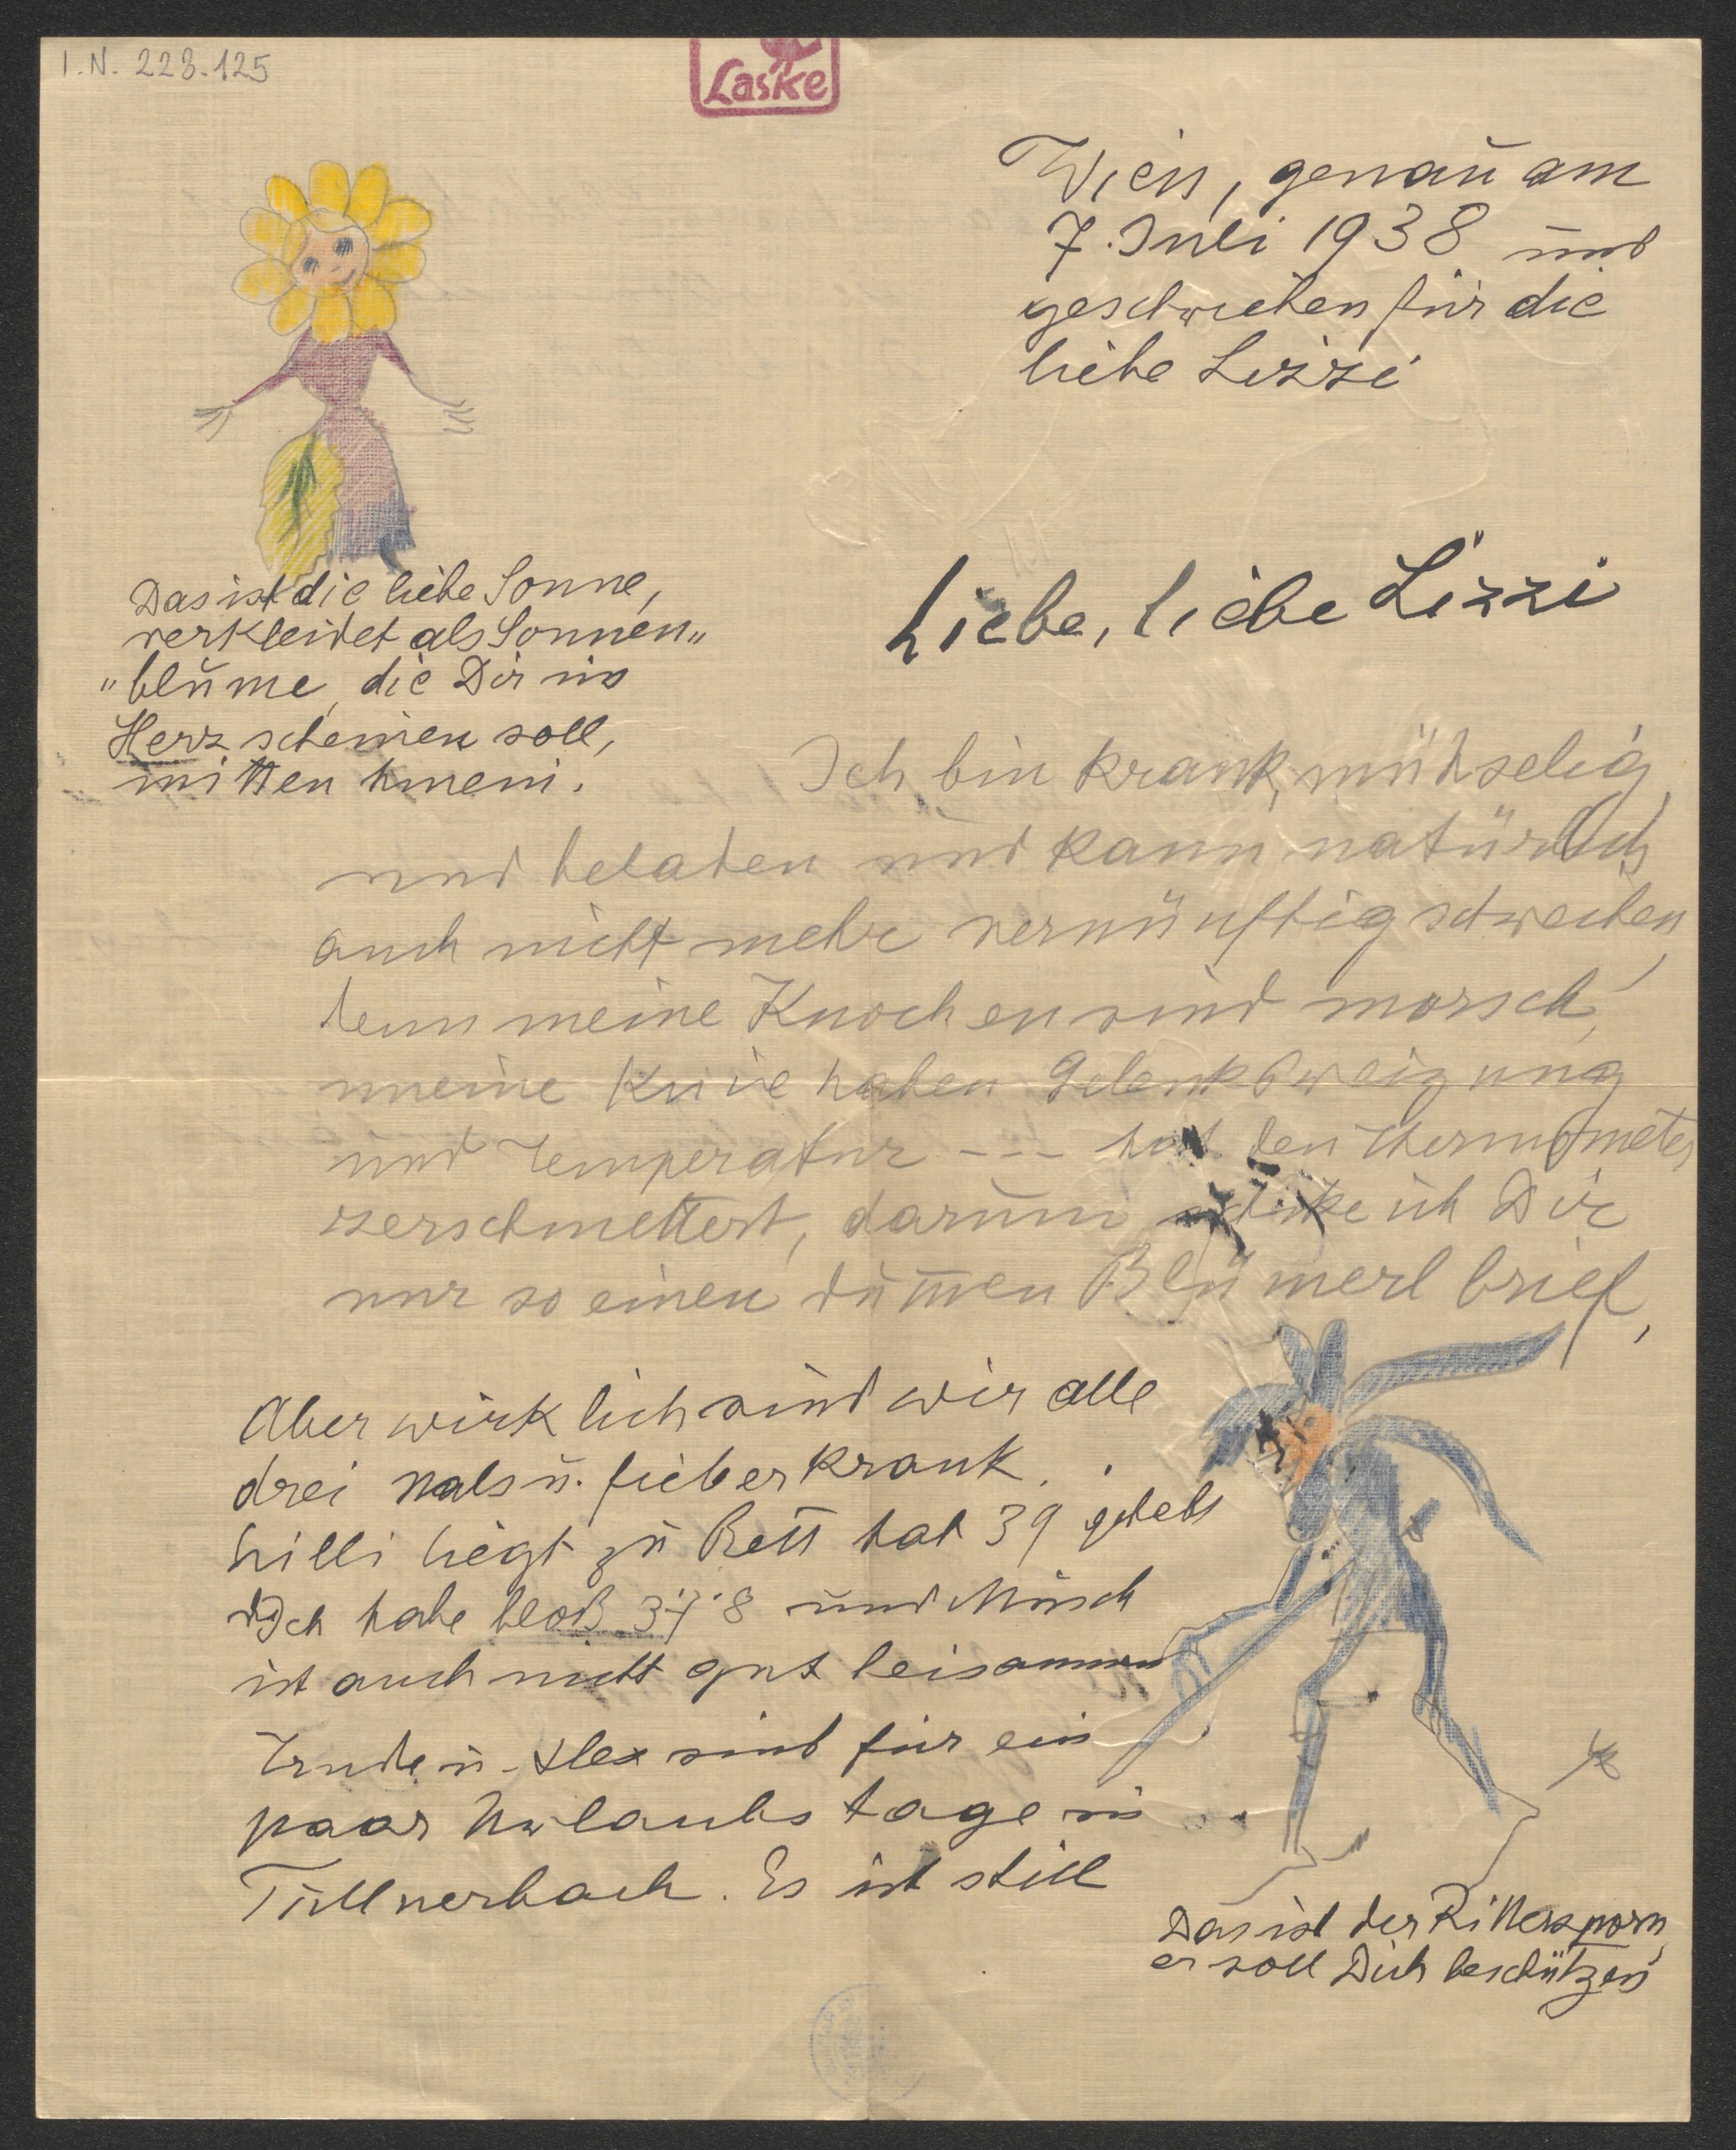 I.N. 223.125
Laske
Wien, genau am
7. Juli 1938 und
geschrieben für die
liebe Lizzi
Das ist die liebe Sonne,
verkleidet als Sonnen„
„blume, die Dir ins
Herz scheinen soll,
mitten hinein.
Liebe, liebe Lizzi
Ich bin krank, mühselig,
und beladen und kann natürlich
auch nicht mehr vernünftig schreiben,
denn meine Knochen sind morsch,
meine Kniee haben
und Temperatur --- hat den Thermometer
zerschmettert, darum schicke ich Dir
nur so einen dum̅en Blümerl brief,
Aber wirklich sind wir alle
drei hals u. fieberkrank.
Lilli liegt zu Bett hat 39 gehabt
Ich habe bloß 37·8 und Musch
ist auch nicht gut beisammen
Trude u. Alex sind für ein
paar Urlaubstage in
Tullnerbach. Es ist still
Das ist der Rittersporn,
er soll Dich beschützen